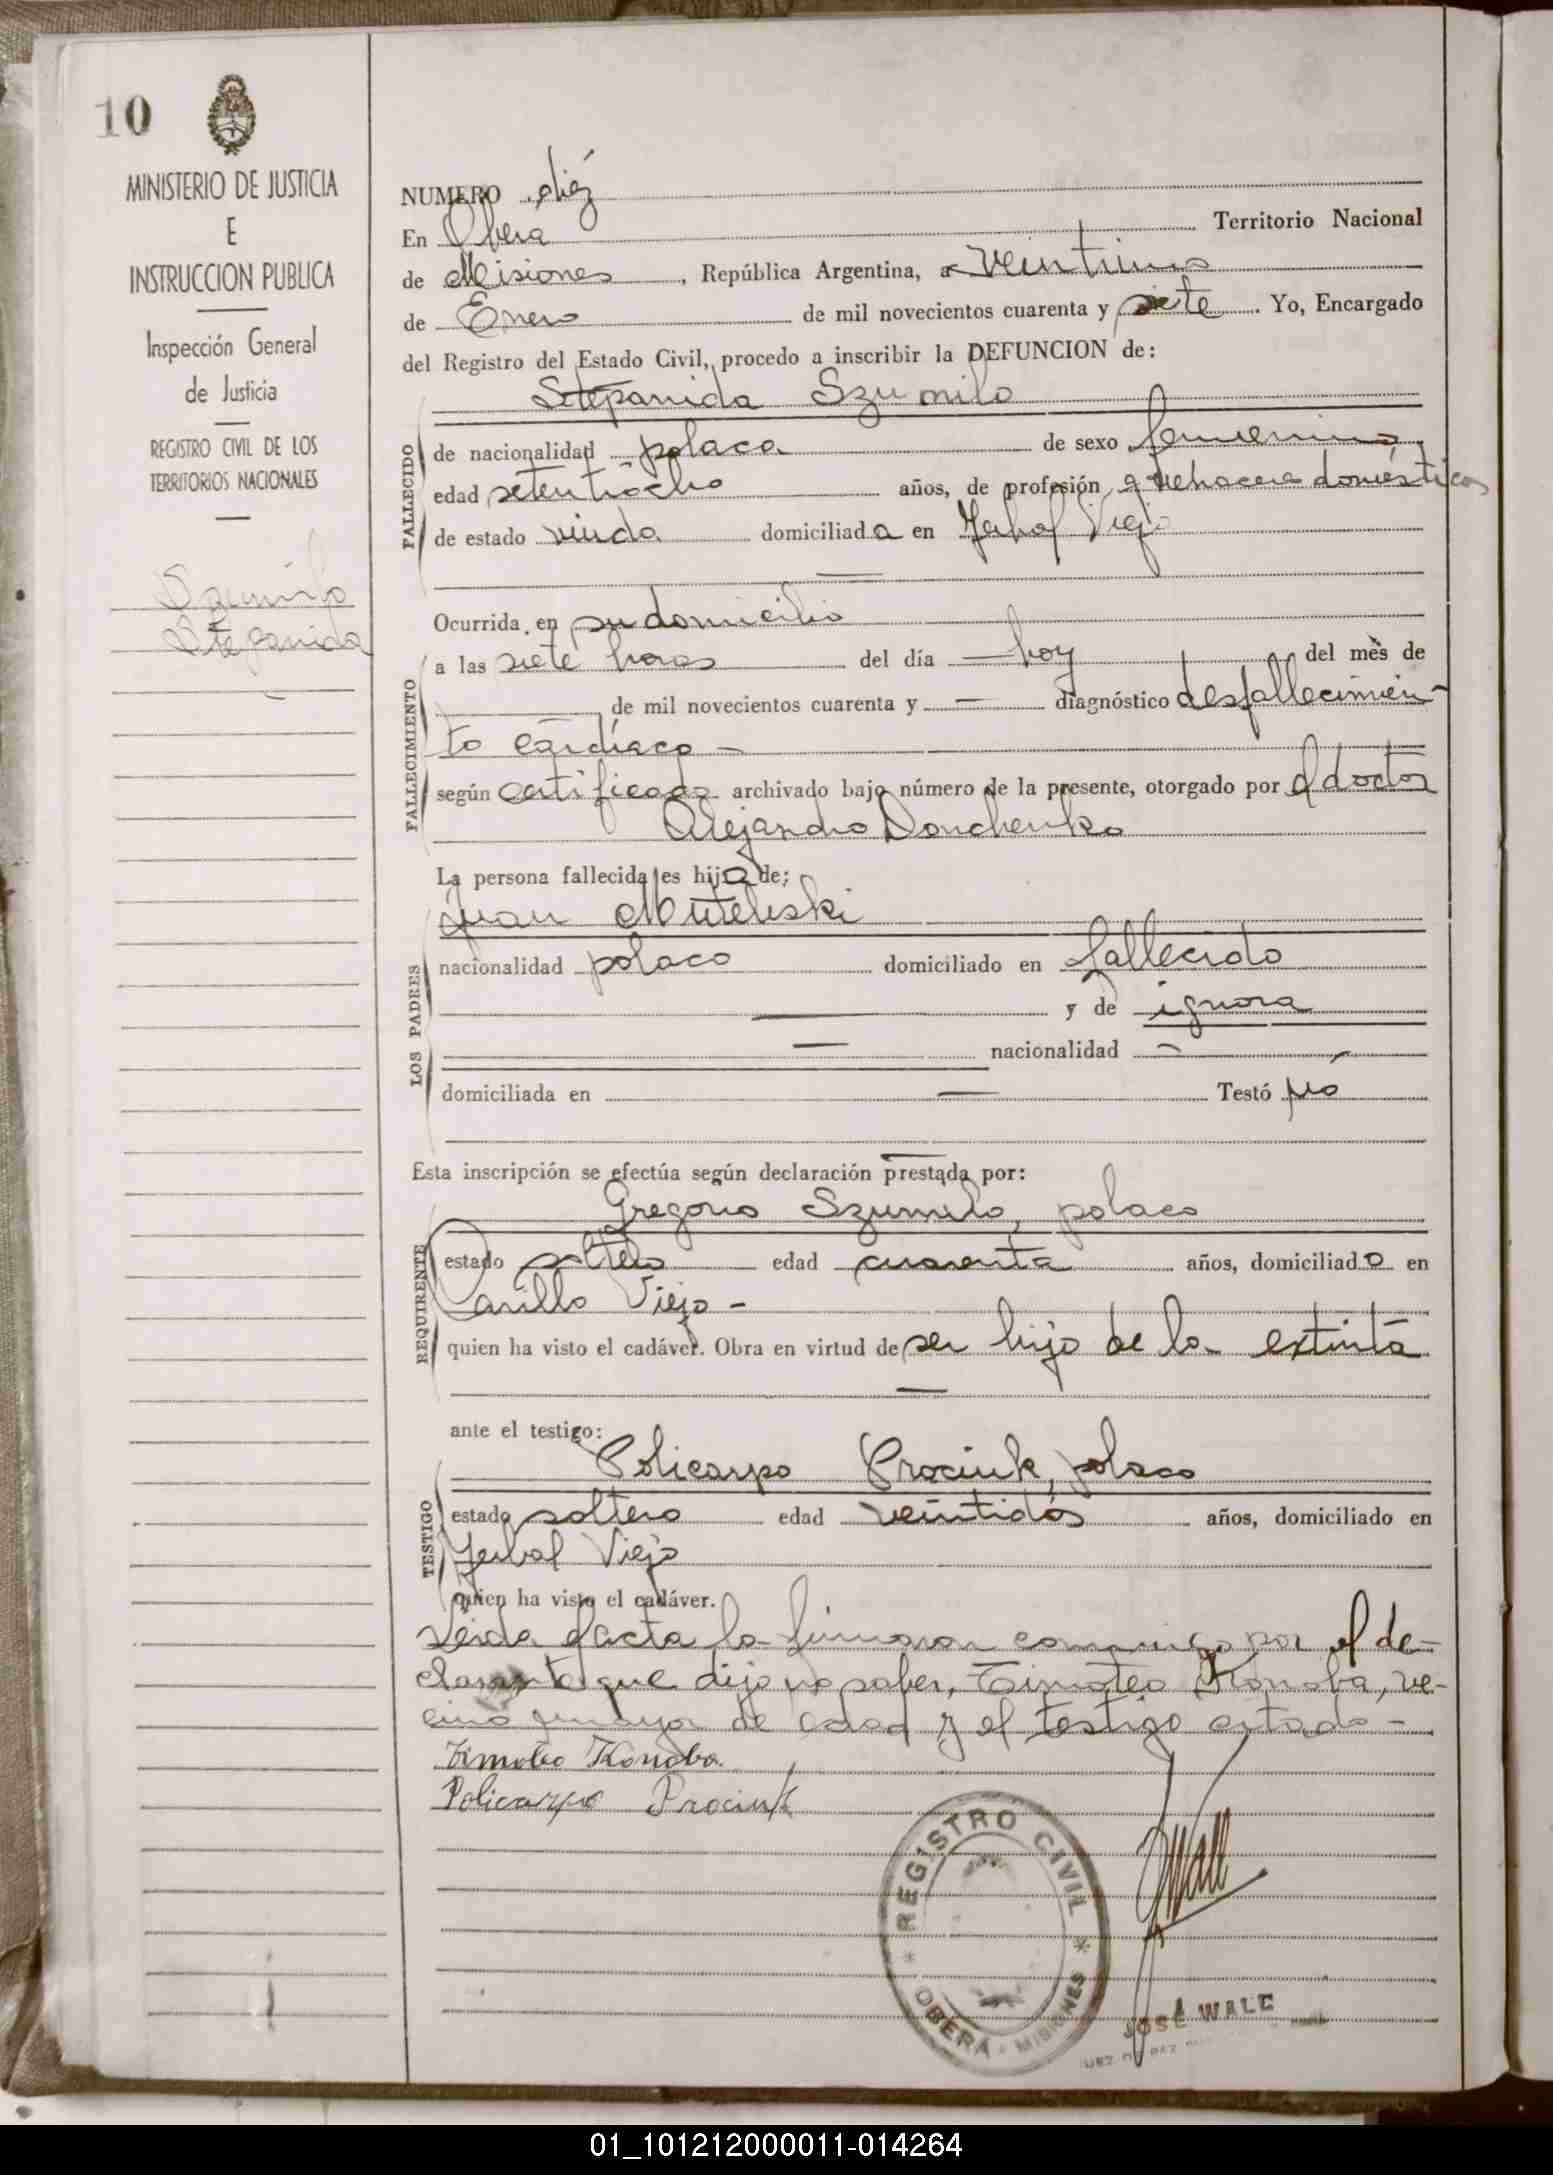 10
MINISTERIO DE JUSTICIA
E
INSTRUCCION PUBLICA
Inspección General
de Justicia
REGISTRO CIVIL DE LOS
TERRITORIOS NACIONALES
Szumilo
Stepanida
NUMERO diez
En Obera Territorio Nacional
de Misiones, República Argentina, a veintiuno
de Enero de mil novecientos cuarenta y siete. Yo, Encargado
del Registro del Estado Civil, procedo a inscribir la DEFUNCION de:
Stepanida Szumilo
FALLECIDO
de nacionalidad polaca de sexo femenino
edad setentiocho años, de profesión quehacere domésticos
de estado viuda domiciliada en Yerbal Viejo
FALLECIMIENTO
Ocurrida en su domicilio
a las siete horas del día hoy del mes de
de mil novecientos cuarenta y — diagnóstico desfallecimien-
to cardíaco -
según certificado archivado bajo número de la presente, otorgado por el doctor
Alejandro Donchenko
La persona fallecida es hija de:
LOS PADRES
Juan
nacionalidad polaco domiciliado en fallecido
— y de ignora
— nacionalidad —
domiciliada en — Testó no
Esta inscripción se efectúa según declaración prestada por:
REQUIRENTE
Gregorio Szumilo, polaco
estado soltero edad cuarenta años, domiciliado en
Viejo -
quien ha visto el cadáver. Obra en virtud de ser hijo de la extinta
—
ante el testigo:
TESTIGO
Policarpo Prociuk, polaco
estado soltero edad veintidós años, domiciliado en
Yerbal Viejo
quien ha visto el cadáver.
Leida el acta la firmaron conmigo por el de-
clarante que dijo no saber, Timoteo Konoba, ve-
cino mayor de edad y el testigo citado -
Timoteo Konoba.
Policarpo Prociuk
JWall
REGISTRO CIVIL
OBERÁ - MISIONES
JOSÉ WALL
JUEZ DE PAZ
01_101212000011-014264